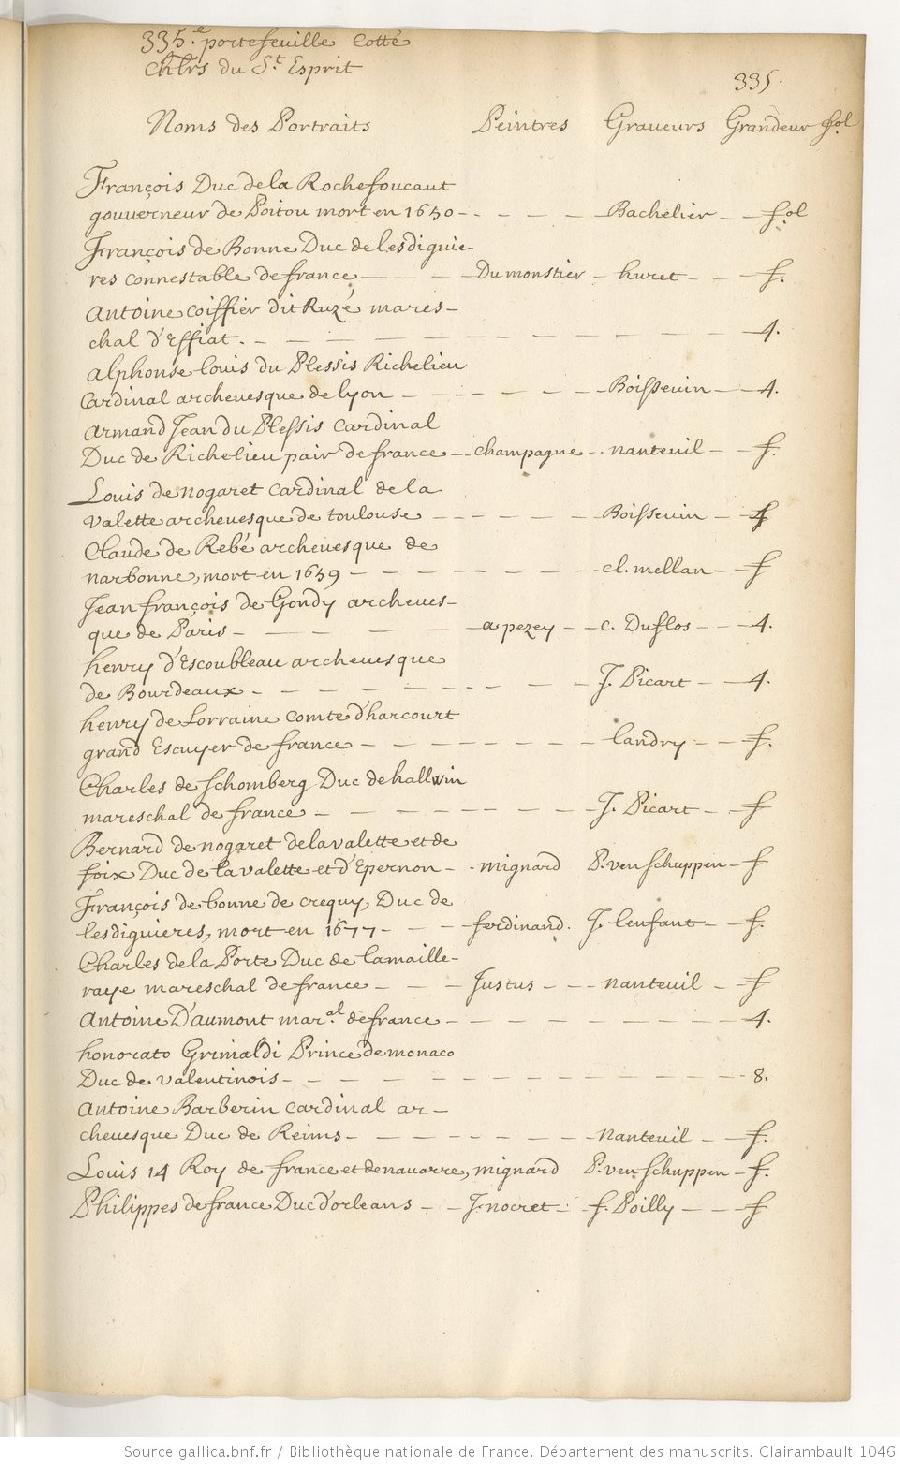 335.e portefeuille Cotté
Chlrs du St Esprit
335.
Noms des Portraits Peintres Graveurs Grandeur fol.
François Duc de la Rochefoucaut
gouverneur de Poitou mort en 1650 - - - - - Bachelier - - fol.
François de Bonne Duc de lesdiguie-
res connestable de france - - - Dumonstier - huret - - - f.
Antoine coiffier dit Ruzé mares-
chal d'Effiat - - - - - - - - - - 4.
alphonse louis du Plessis Richelieu
Cardinal archevesque de lyon - - - - - Boissevin - 4.
armand Jean du Plessis Cardinal
Duc de Richelieu pair de france - champagne - nanteuil - f.
Louis de nogaret Cardinal de la
Valette archevesque de toulouse - - - - - Boissevin - f
Claude de Rebé archevesque de
narbonne, mort en 1659 - - - - - cl. mellan - f
Jean françois de Gondy archeves-
que de Paris - - - - a pezey - - c. Duflos - - 4.
henry d'Escoubleau archevesque
de Bourdeaux - - - - - - - J. Picart - 4.
henry de Lorraine comte d'harcourt
grand Escuyer de france - - - - - - landry - - f.
Charles de Schomberg Duc de hallwin
mareschal de france - - - - - - J. Picart - f
Bernard de nogaret de la valette et de
foix Duc de la valette et d'Epernon - mignard P. ven schuppen - f
François de bonne de crequy, Duc de
lesdiguieres, mort en 1677 - - - ferdinand. J. lenfant - f.
Charles de la Porte Duc de lamaille-
raye mareschal de france - - - Justus - - - nanteuil - f
Antoine D'aumont mar.al de france - - - - - - - - 4.
honorato Grimaldi Prince de monaco
Duc de Valentinois - - - - - - - - - - 8.
Antoine Barberin Cardinal ar-
chevesque Duc de Reims - - - - - - nanteuil - f.
Louis 14 Roy de france et de navarre, mignard P. ven schuppen - f.
Philippes de france Duc d'orleans - - J. nocret - f. Poilly - - f
Source gallica.bnf.fr / Bibliothèque nationale de France. Département des manuscrits. Clairambault 1046